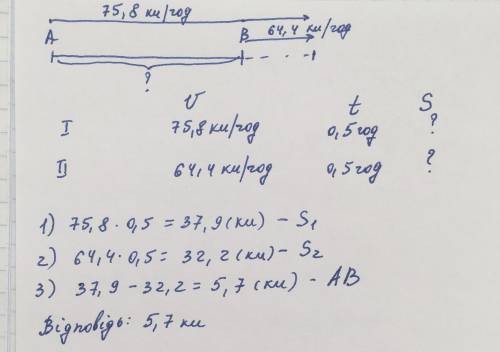 75,8 км/год
A B 64,4 км/год
?
V t S
I 75,8 км/год 0,5 год ?
II 64,4 км/год 0,5 год ?
1) 75,8 · 0,5 = 37,9 (км) – S1
2) 64,4 · 0,5 = 32,2 (км) – S2
3) 37,9 – 32,2 = 5,7 (км) – AB
Відповідь: 5,7 км